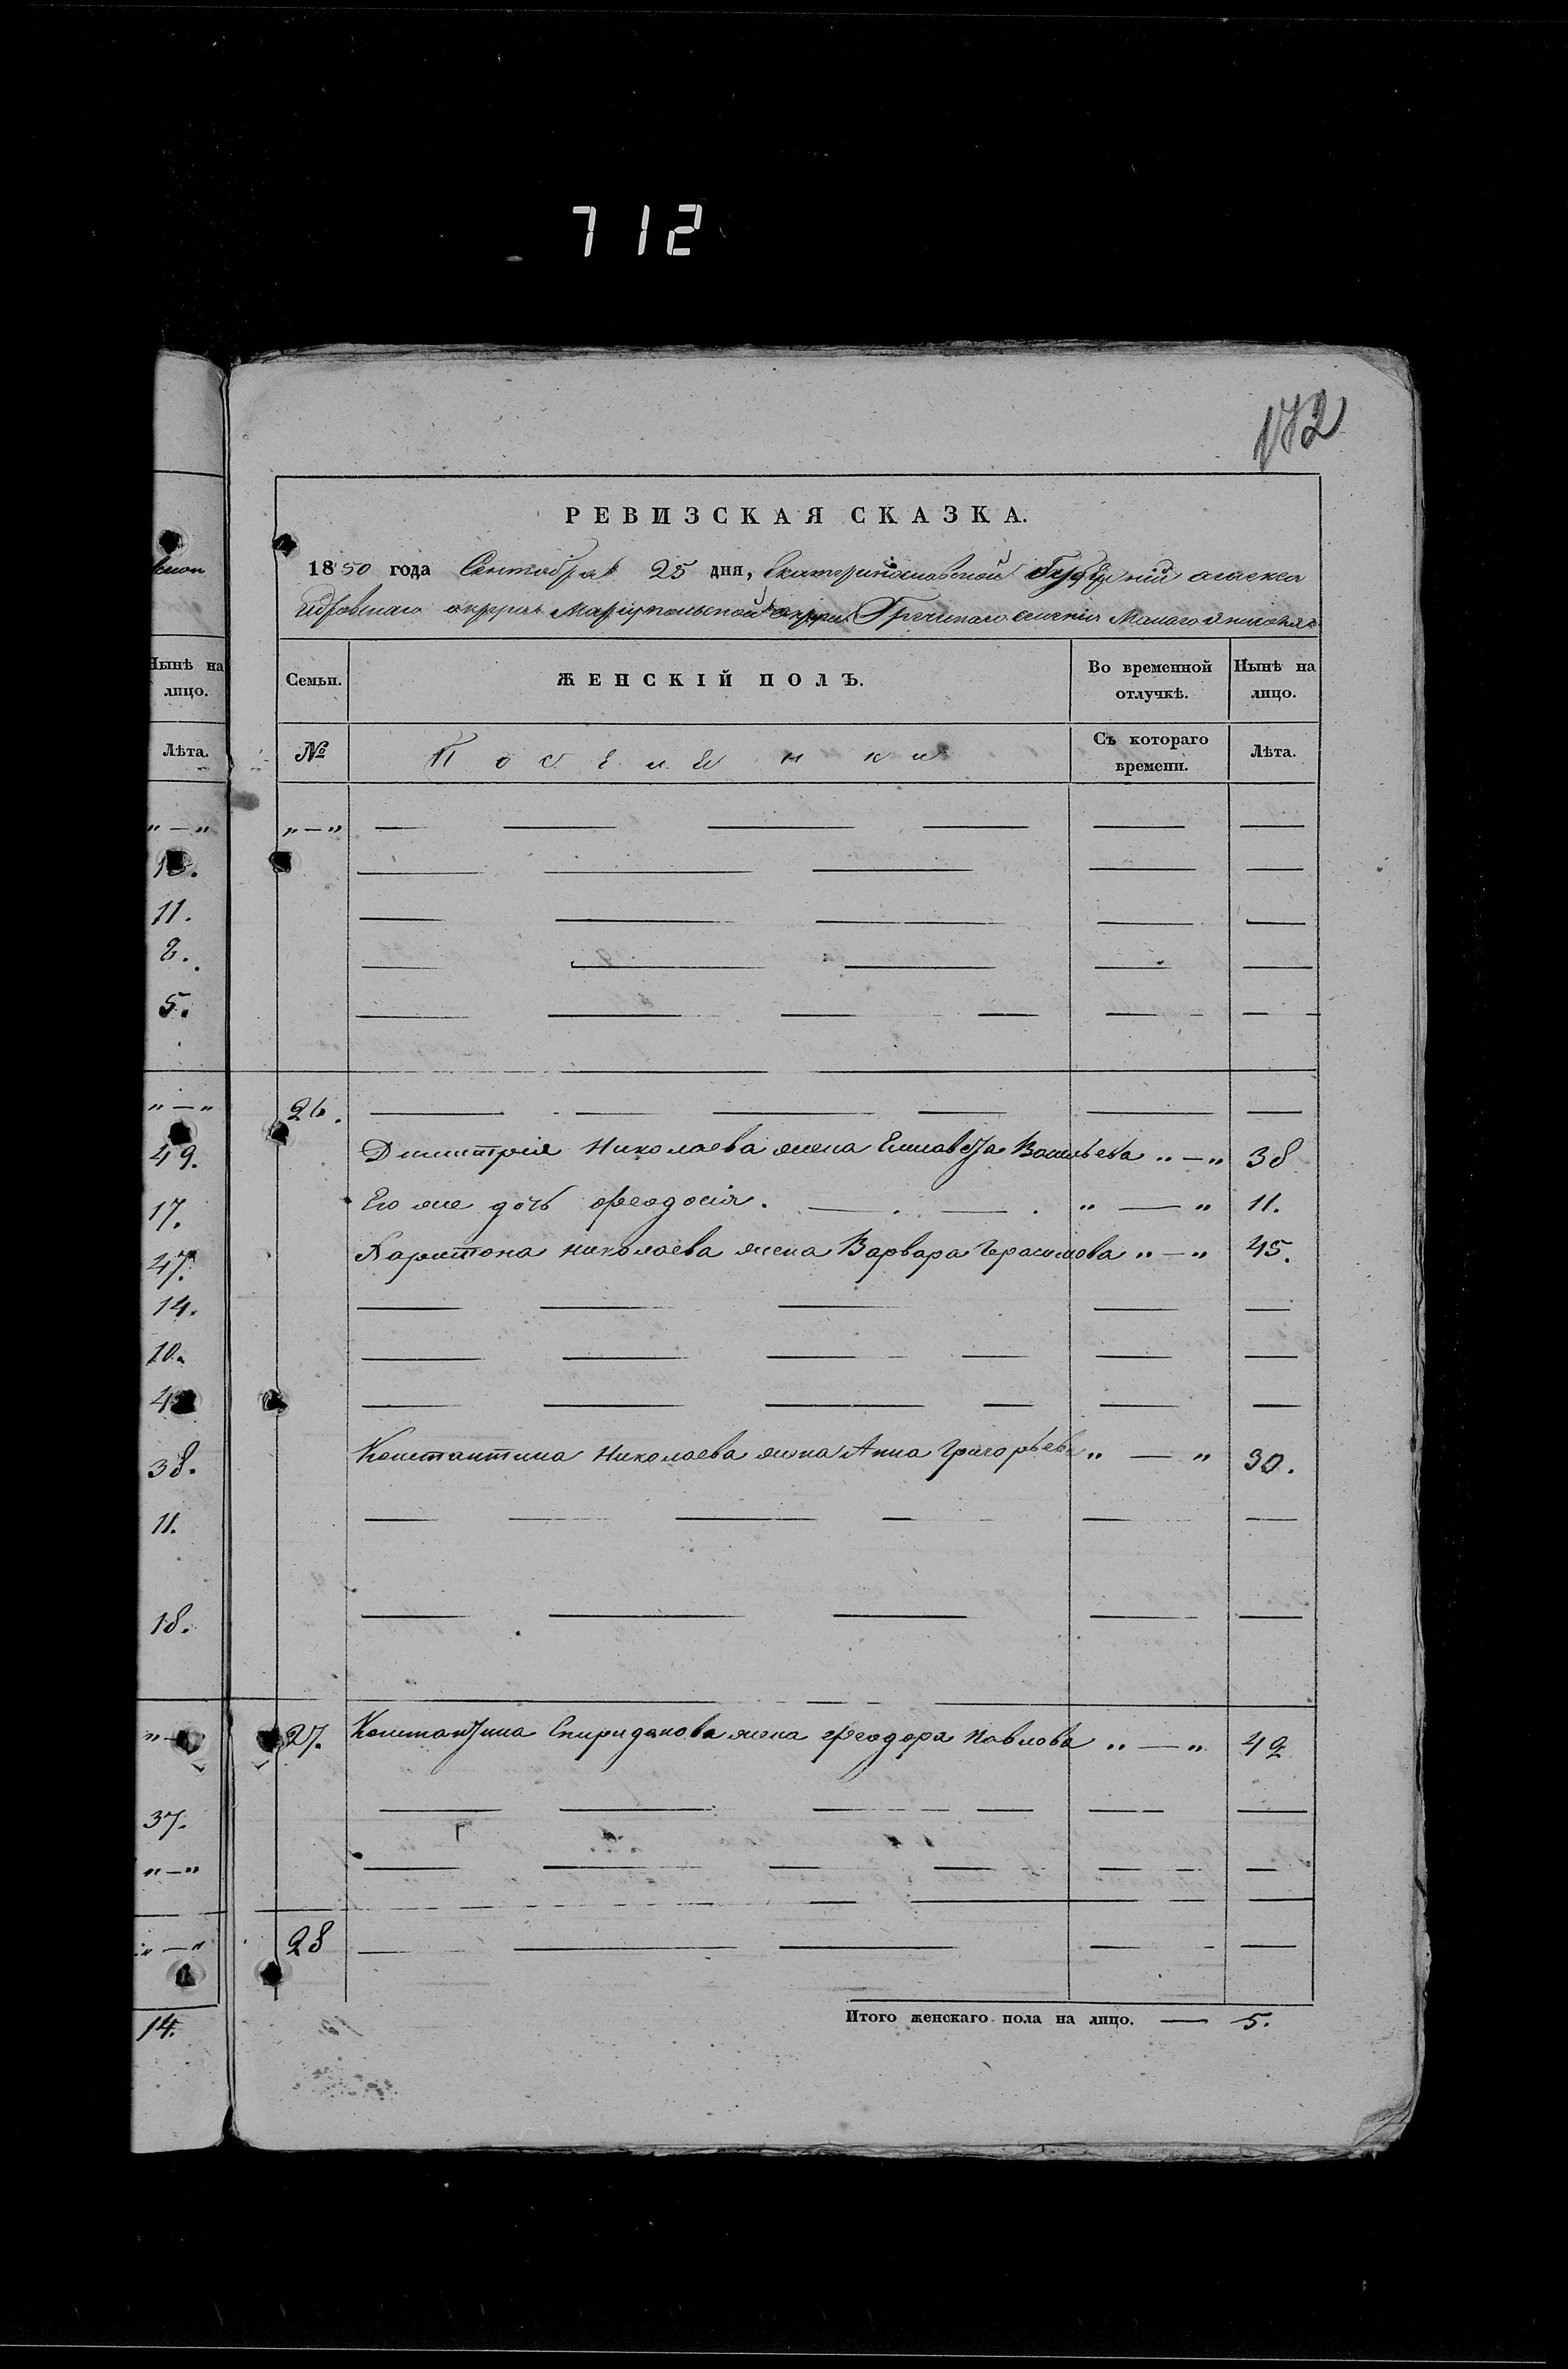 712
172
РЕВИЗСКАЯ СКАЗКА.
1850 года Сентября 25 дня, Екатеринославской Губерніи Алекса
ндровскаго округа Маріупольской Греческаго селенія Малаго Янисоля
Нынѣ на лицо.
Лѣта.
„ — „
11.
8.
5.
„ — „
49.
17.
47.
14.
10.
38.
11.
18.
37.
„ — „
„ — „
14.
Семьи. ЖЕНСКІЙ ПОЛЪ. Во временной отлучкѣ. Нынѣ на лицо.
№ Поселянки Съ котораго времени. Лѣта.
„ — „
26.
Димитрія Николаева жена Елисавета Васильева „ — „ 38
Его же дочь Ѳеодосія. „ — „ 11.
Харитона Николаева жена Варвара Герасимова „ — „ 45.
Константина Николаева жена Анна Григорьева „ — „ 30.
27. Константина Спиридонова жена Ѳеодора Павлова „ — „ 42
28
Итого женскаго пола на лицо. — 5.